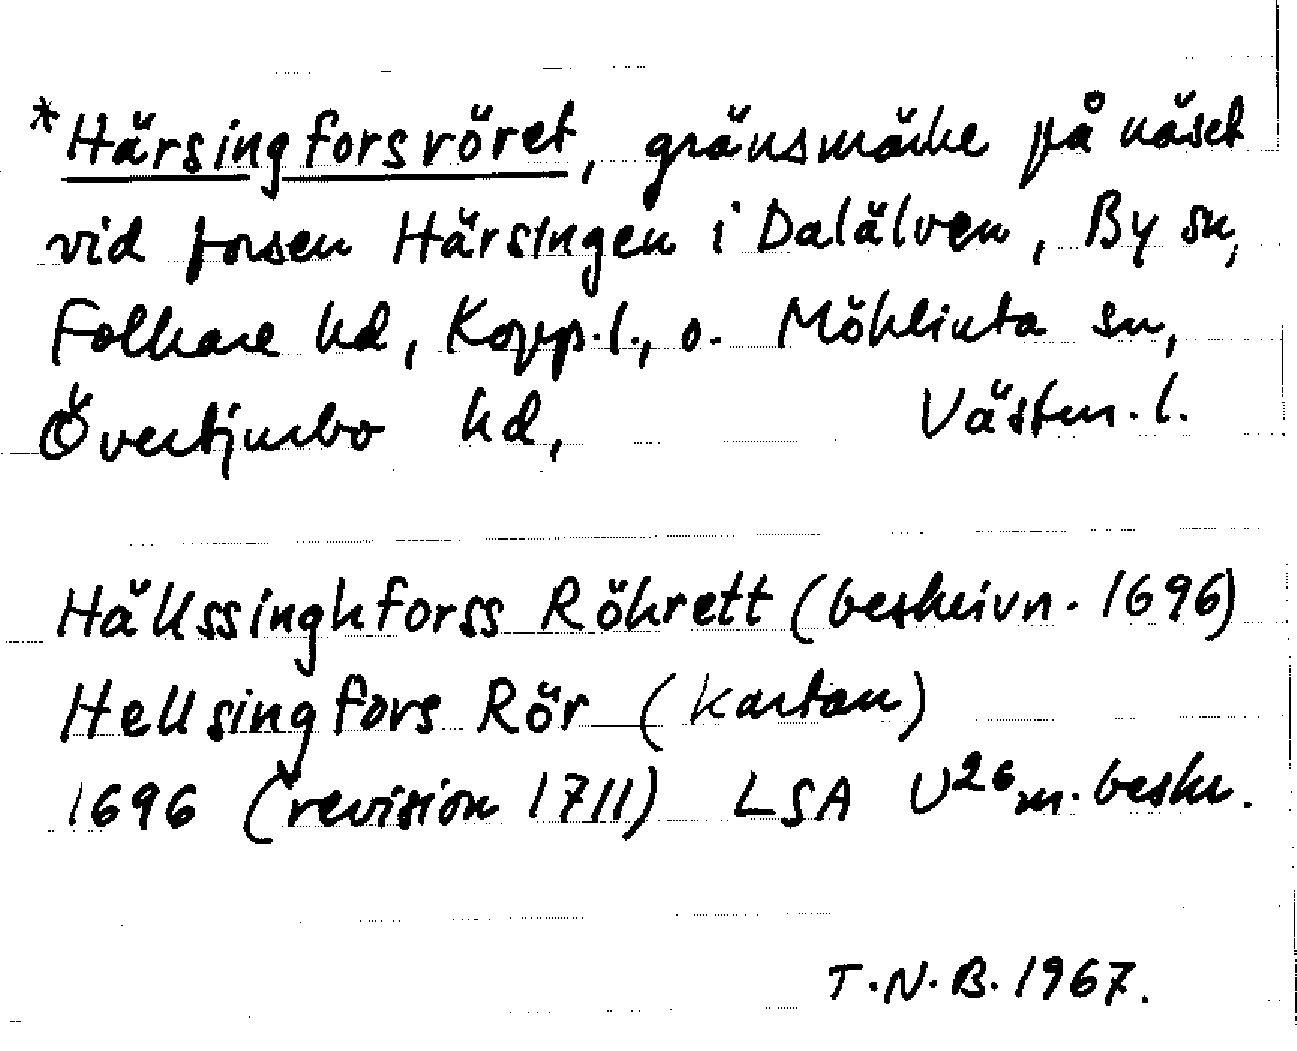 *Härsingforsröret, gränsmärke på näset
vid forsen Härsingen i Dalälven, By sn,
Folkare hd, Kopp.l., o. Möklinta sn,
Övertjurbo hd, Västm. l.
Hällssinghforss Röhrett (beskrivn. 1696)
Hellsingfors Rör (kartan)
1696 (revision 1711) LSA U26 m. beskr.
T.N.B. 1967.